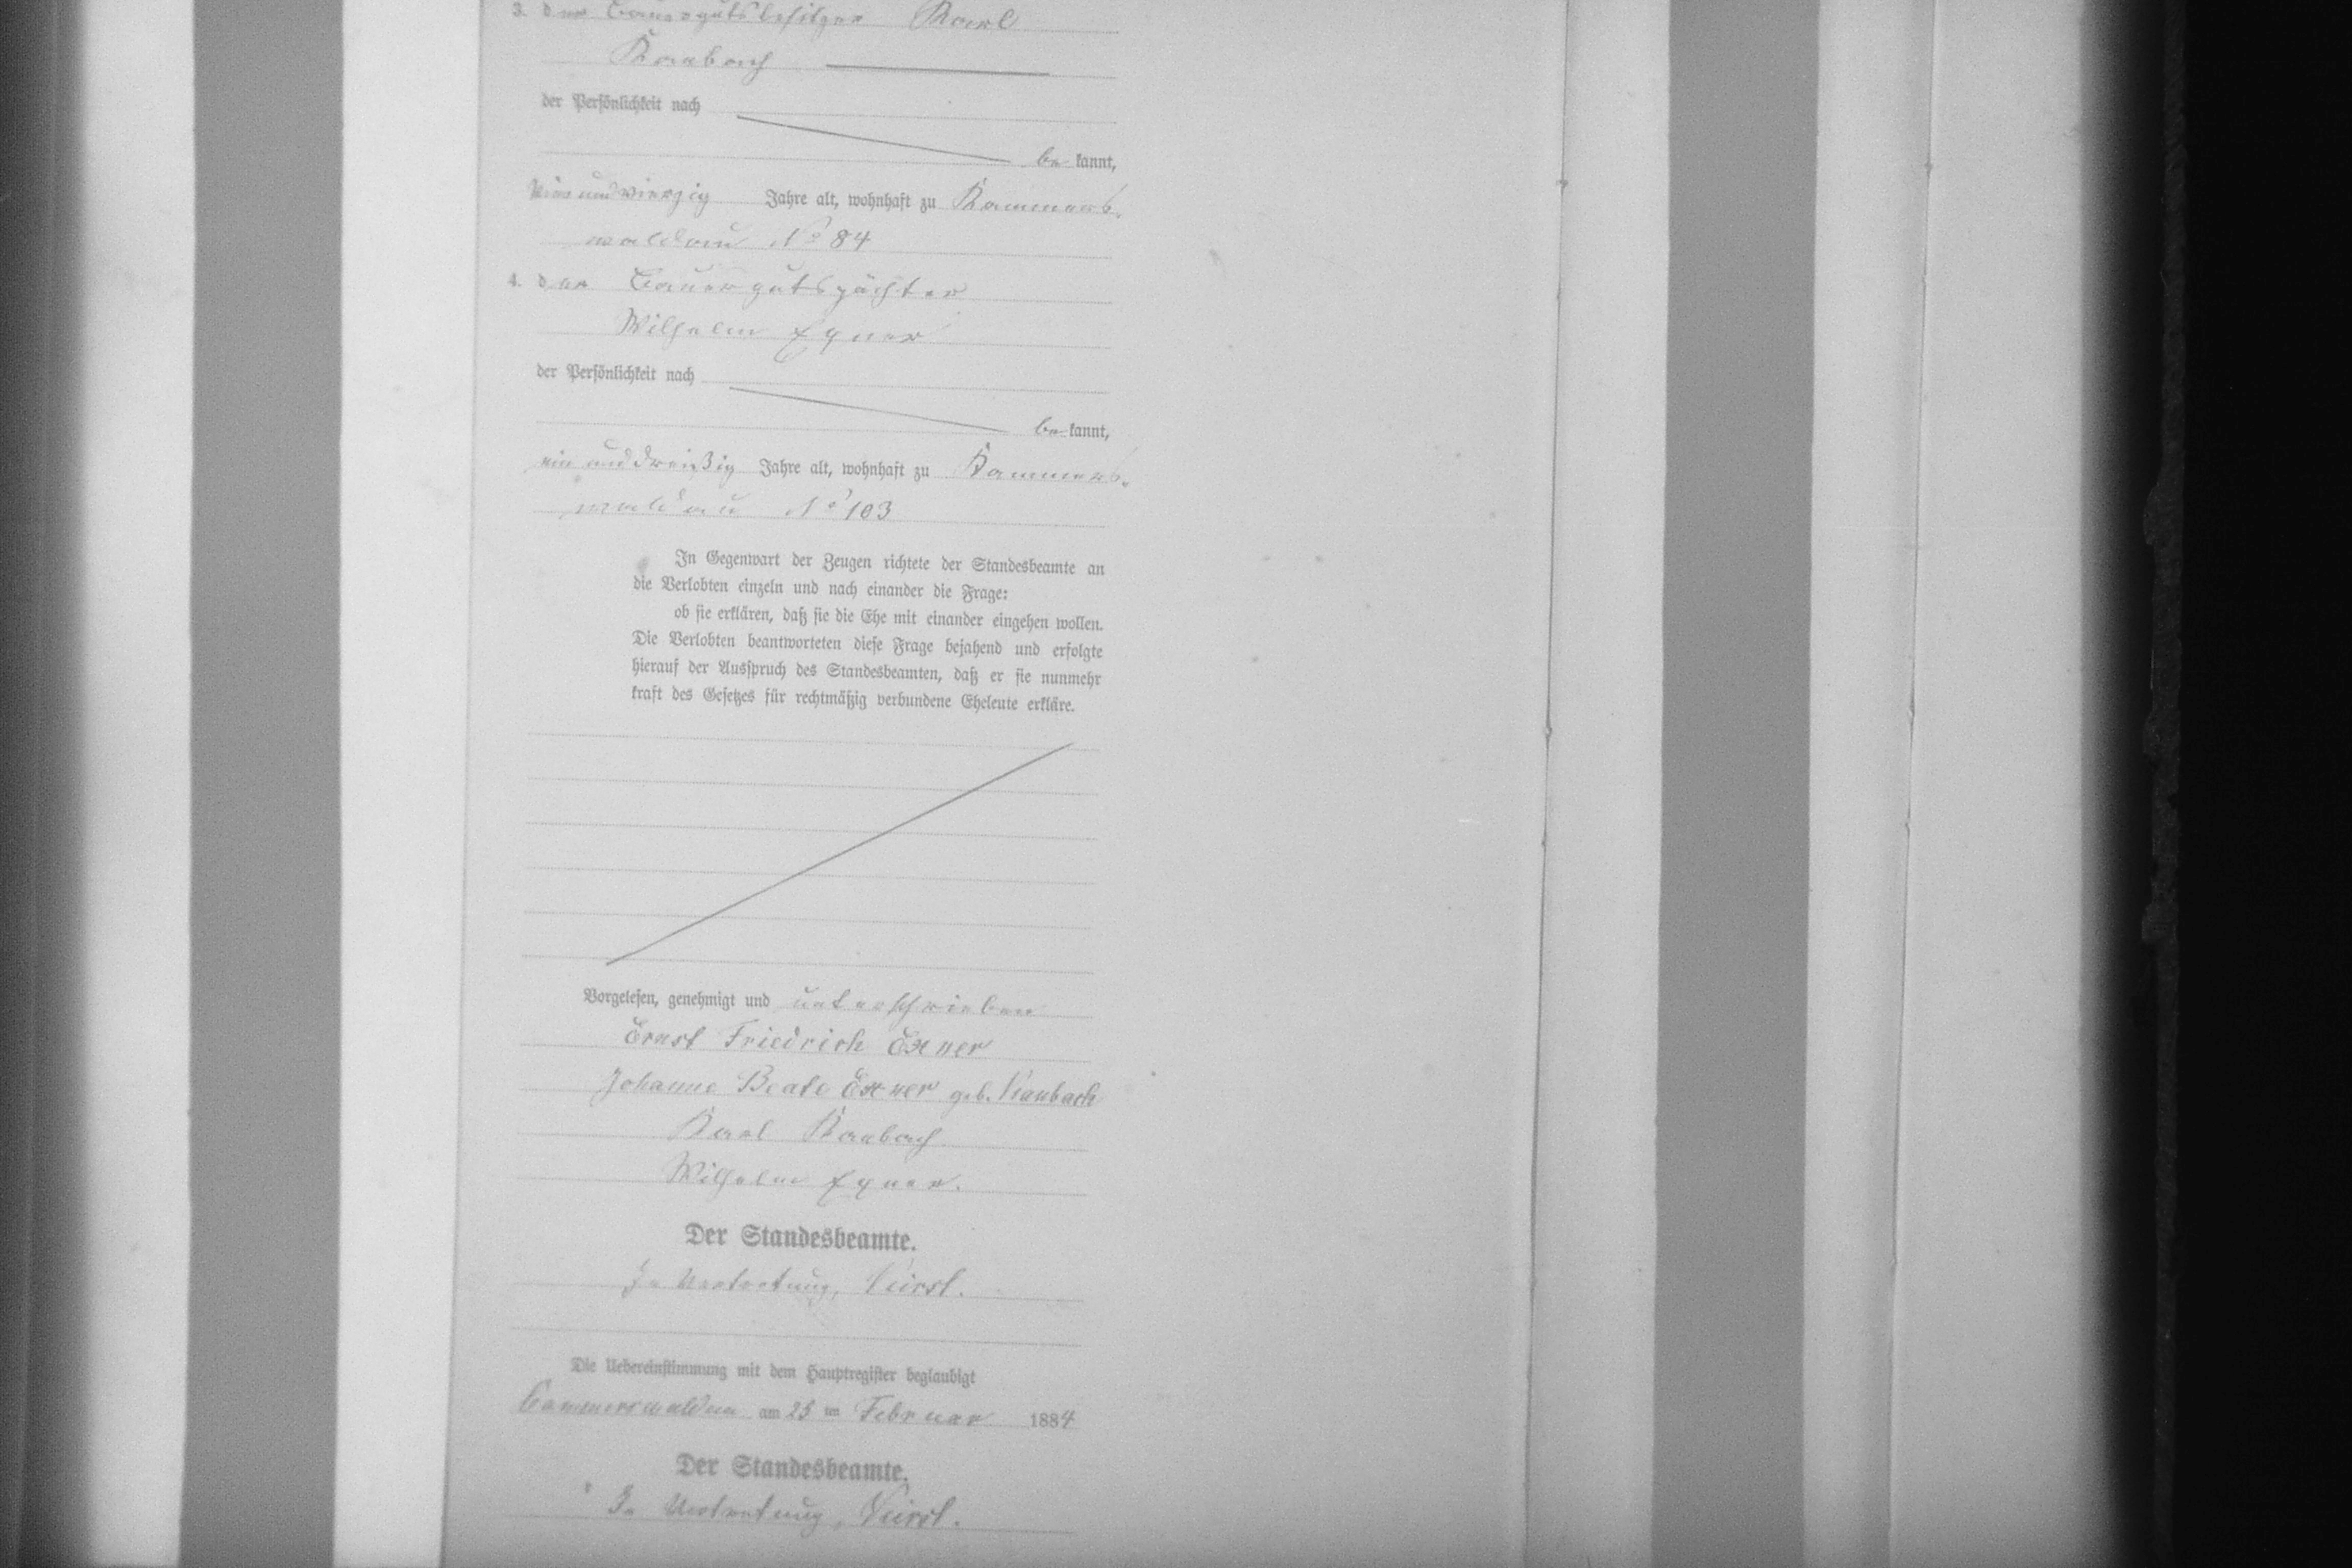 3. der Bauergutsbesitzer Karl
Raubach
der Persönlichkeit nach
be kannt,
undvierzig Jahre alt, wohnhaft zu Kammers-
waldau No 84
4. der Bauergutspächter
Wilhelm Exner
der Persönlichkeit nach
be kannt,
ein unddreißig Jahre alt, wohnhaft zu Kammers-
waldau No 103
In Gegenwart der Zeugen richtete der Standesbeamte an
die Verlobten einzeln und nach einander die Frage:
ob sie erklären, daß sie die Ehe mit einander eingehen wollen.
Die Verlobten beantworteten diese Frage bejahend und erfolgte
hierauf der Ausspruch des Standesbeamten, daß er sie nunmehr
kraft des Gesetzes für rechtmäßig verbundene Eheleute erkläre.
Vorgelesen, genehmigt und unterschrieben
Ernst Friedrich Exner
Johanne Beate Exner geb. Raubach
Karl Raubach
Wilhelm Exner.
Der Standesbeamte.
In Vertretung,
Die Uebereinstimmung mit dem Hauptregister beglaubigt
Cammerswaldau am 25 ten Februar 1884
Der Standesbeamte.
In Vertretung,